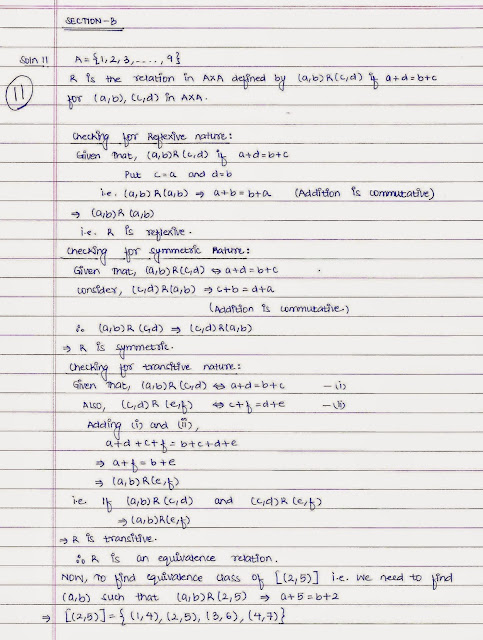 SECTION-B
Soln 11 A = {1,2,3,----,9}
R is the relation in AXA defined by (a,b)R(c,d) if a+d=b+c
11
for (a,b), (c,d) in AXA.
Checking for Reflexive nature:
Given that, (a,b)R(c,d) if a+d=b+c
Put c=a and d=b
i.e. (a,b)R(a,b) ⇒ a+b=b+a (Addition is commutative)
⇒ (a,b)R(a,b)
i.e. R is reflexive.
Checking for symmetric Nature:
Given that, (a,b)R(c,d) ⇔ a+d=b+c
consider, (c,d)R(a,b) ⇒ c+b=d+a
(Addition is commutative.)
∴ (a,b)R(c,d) ⇒ (c,d)R(a,b)
⇒ R is symmetric.
Checking for transitive nature:
Given that, (a,b)R(c,d) ⇔ a+d=b+c -(i)
Also, (c,d)R(e,f) ⇔ c+f=d+e -(ii)
Adding (i) and (ii),
a+d+c+f = b+c+d+e
⇒ a+f=b+e
⇒ (a,b)R(e,f)
i.e. If (a,b)R(c,d) and (c,d)R(e,f)
⇒ (a,b)R(e,f)
⇒ R is transitive.
∴ R is an equivalence relation.
NOW, to find equivalence class of [(2,5)] i.e. we need to find
(a,b) such that (a,b)R(2,5) ⇒ a+5=b+2
⇒ [(2,5)] = {(1,4),(2,5),(3,6),(4,7)}